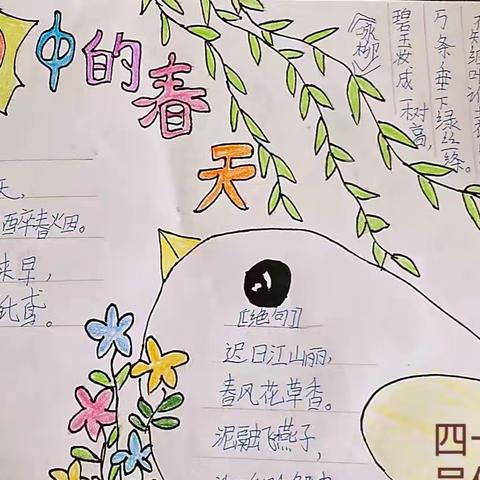 中的春天
《咏柳》
碧玉妆成一树高,
万条垂下绿丝绦。
天,
醉春烟。
来早,
纸鸢。
【绝句】
迟日江山丽,
春风花草香。
泥融飞燕子,
四